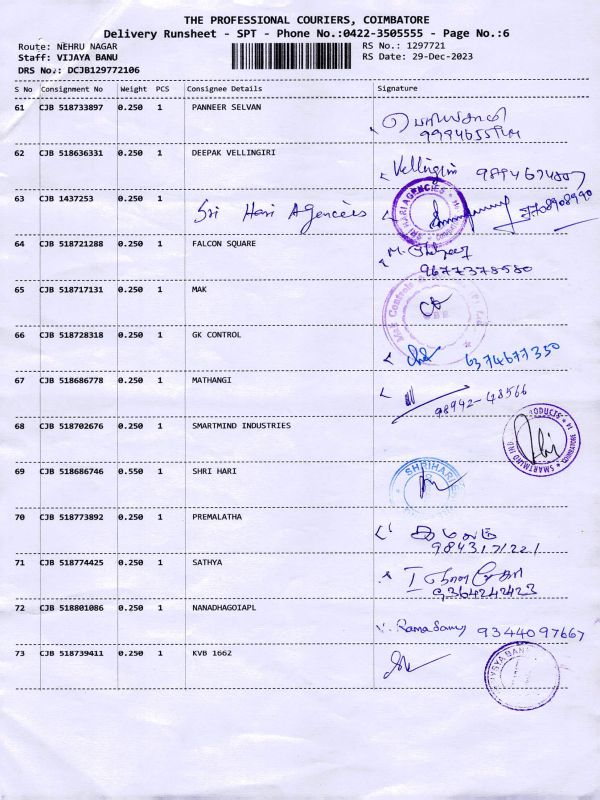 THE PROFESSIONAL COURIERS, COIMBATORE
Delivery Runsheet - SPT - Phone No.:0422-3505555 - Page No.:6
Route: NEHRU NAGAR
Staff: VIJAYA BANU
DRS No.: DCJB129772106
RS No.: 1297721
RS Date: 29-Dec-2023
S No Consignment No Weight PCS Consignee Details Signature
61 CJB 518733897 0.250 1 PANNEER SELVAN
62 CJB 518636331 0.250 1 DEEPAK VELLINGIRI Vellingiri
63 CJB 1437253 0.250 1 Sri Hari Agencies
SRI HARI AGENCIES
64 CJB 518721288 0.250 1 FALCON SQUARE
9677378580
65 CJB 518717131 0.250 1 MAK
Mak Controls
66 CJB 518728318 0.250 1 GK CONTROL 6374677350
67 CJB 518686778 0.250 1 MATHANGI 98942-48566
68 CJB 518702676 0.250 1 SMARTMIND INDUSTRIES
SMARTMIND
69 CJB 518686746 0.550 1 SHRI HARI
SHRIHARI
70 CJB 518773892 0.250 1 PREMALATHA
9843171221
71 CJB 518774425 0.250 1 SATHYA
9364242423
72 CJB 518801086 0.250 1 NANADHAGOIAPL Ramasamy 9344097667
73 CJB 518739411 0.250 1 KVB 1662
VYSYA BANK